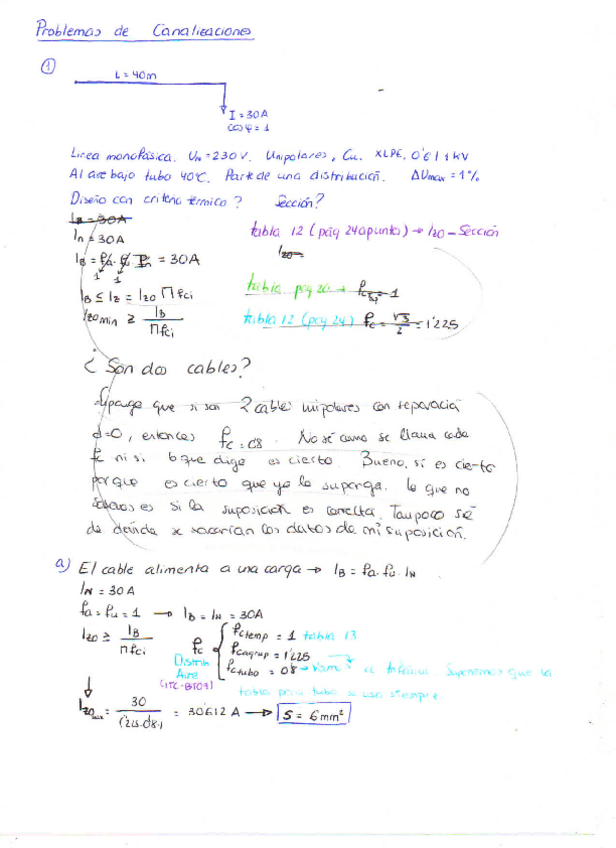 Problemas de Canalizaciones
①
L = 40m
I = 30A
cos φ = 1
Linea monofásica. Un = 230 V. Unipolares, Cu. XLPE, 0'6/1 kV
Al aire bajo tubo 40ºC. Parte de una distribución. ΔUmax = 1%
Diseño con criterio térmico? Sección?
IB = 30A
In = 30A
tabla 12 (pág 24 apuntes) → I20 - Sección
I20=
IB = fa · fu · In = 30A
1 1
tabla pág 26 → = 1
IB ≤ Iz = I20 Π fci
tabla 12 (pág 24) fc = √3/2 = 1'225
I20 min ≥ IB / Π fci
¿Son dos cables?
Supongo que si son 2 cables unipolares con separación
d=0, entonces fc = 08. No sé como se llama cada
fc ni si lo que digo es cierto. Bueno, sí es cierto
porque es cierto que yo lo suponga. Lo que no
sabemos es si la suposición es correcta. Tampoco sé
de dónde se sacarían los datos de mi suposición.
a) El cable alimenta a una carga → IB = fa · fu · IN
IN = 30A
fa = fu = 1 → IB = IN = 30A
I20 ≥ IB / Π fci
fc
fc temp = 1 tabla 13
fc agrup = 1'225
fc tubo = 08 → Suponemos que la
Distrib
Aire
(ITC-BT07)
tabla para tubo se usa siempre.
I20 = 30 / (1'225·08·1) = 30'612 A → S = 6 mm²